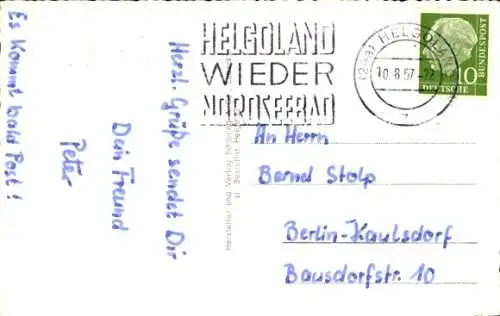 Es kommt bald Post!
Herzl. Grüße sendet Dir
Dein Freund
Peter
HELGOLAND
WIEDER
NORDSEEBAD
HELGOLAND
10.8.57
10
DEUTSCHE
BUNDESPOST
Hersteller und Verlag
An Herrn
Bernd Stolp
Berlin-Kaulsdorf
Bausdorfstr. 10